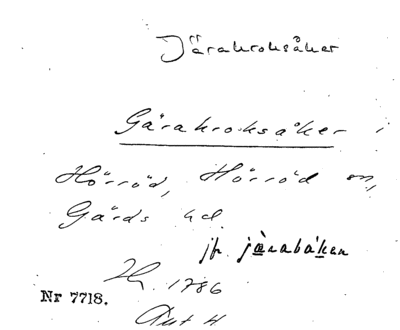 Järakroksåker
Gärakroksåker i
Hörröd, Hörröd sn,
Gärds hd.
jfr jàrabáken
1786
Nr 7718.